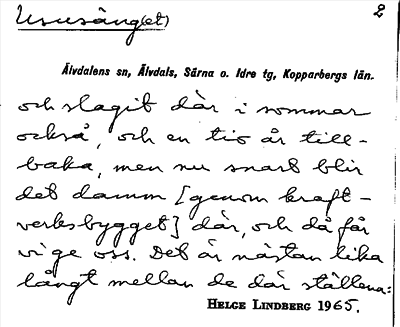 Ususäng(et)
2
Älvdalens sn, Älvdals, Särna o. Idre tg, Kopparbergs län.
och slagit där i sommar
också, och en tio år till-
baka, men nu snart blir
det damm [genom kraft-
verksbygget] där, och då får
vi ge oss. Det är nästan lika
långt mellan de där ställena:
HELGE LINDBERG 1965.